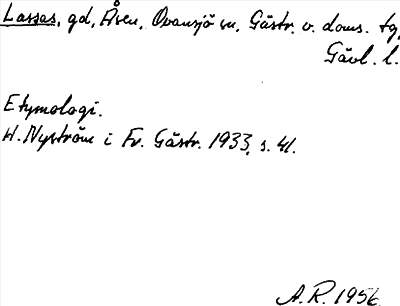 Lassas, gd, Åsen, Ovansjö sn, Gästr. v. doms. tg,
Gävl. l.
Etymologi.
H. Nyström i Fr. Gästr. 1933, s. 41.
A.R. 1956.